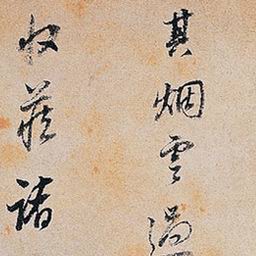 其烟雲過
收藏諸